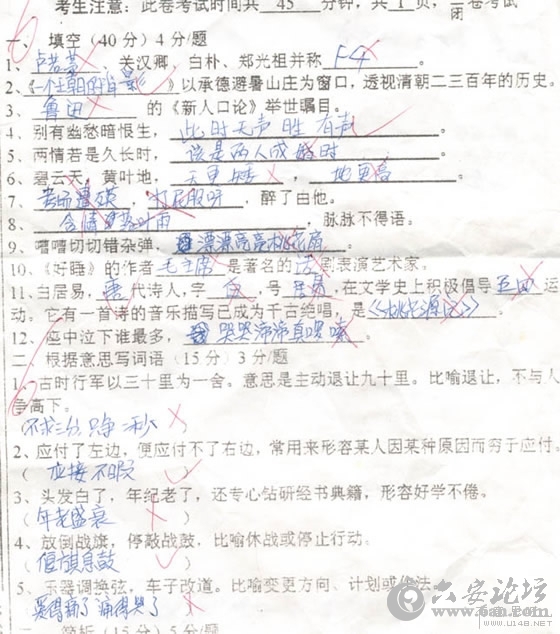 考生注意：此卷考试时间共 45 分钟，共 1 页，闭卷考试
一、填空（40分）4分/题
1、卢若菩、关汉卿、白朴、郑光祖并称 F4 。
2、《一个王朝的背影》以承德避暑山庄为窗口，透视清朝二三百年的历史。
3、鲁迅 的《新人口论》举世瞩目。
4、别有幽愁暗恨生， 此时无声胜有声 。
5、两情若是久长时， 该是两人成婚时 。
6、碧云天，黄叶地， 天更矮 ， 地更高 。
7、考听遭殃 ， 打屁股呀 ，醉了由他。
8、 含情 叶雨 ，脉脉不得语。
9、嘈嘈切切错杂弹， 漂漂亮亮桃花扇 。
10、《好睡》的作者 毛主席 是著名的 话 剧表演艺术家。
11、白居易， 唐 代诗人，字 白 ，号 居易 ，在文学史上积极倡导 五四 运
动。它有一首诗的音乐描写已成为千古绝唱，是《桃花源记》。
12、座中泣下谁最多， 哭哭啼啼真啰嗦 。
二、根据意思写词语（15分）3分/题
1、古时行军以三十里为一舍。意思是主动退让九十里。比喻退让，不与人
争高下。
（不求三分 只争一秒 ）
2、应付了左边，便应付不了右边，常用来形容某人因某种原因而穷于应付。
（ 应接不暇 ）
3、头发白了，年纪老了，还专心钻研经书典籍，形容好学不倦。
（年老盛衰 ）
4、放倒战旗，停敲战鼓，比喻休战或停止行动。
（偃旗息鼓 ）
5、乐器调换弦，车子改道。比喻变更方向、计划或作法
三、简析（15分）5分/题
六安论坛
www.U148.NET